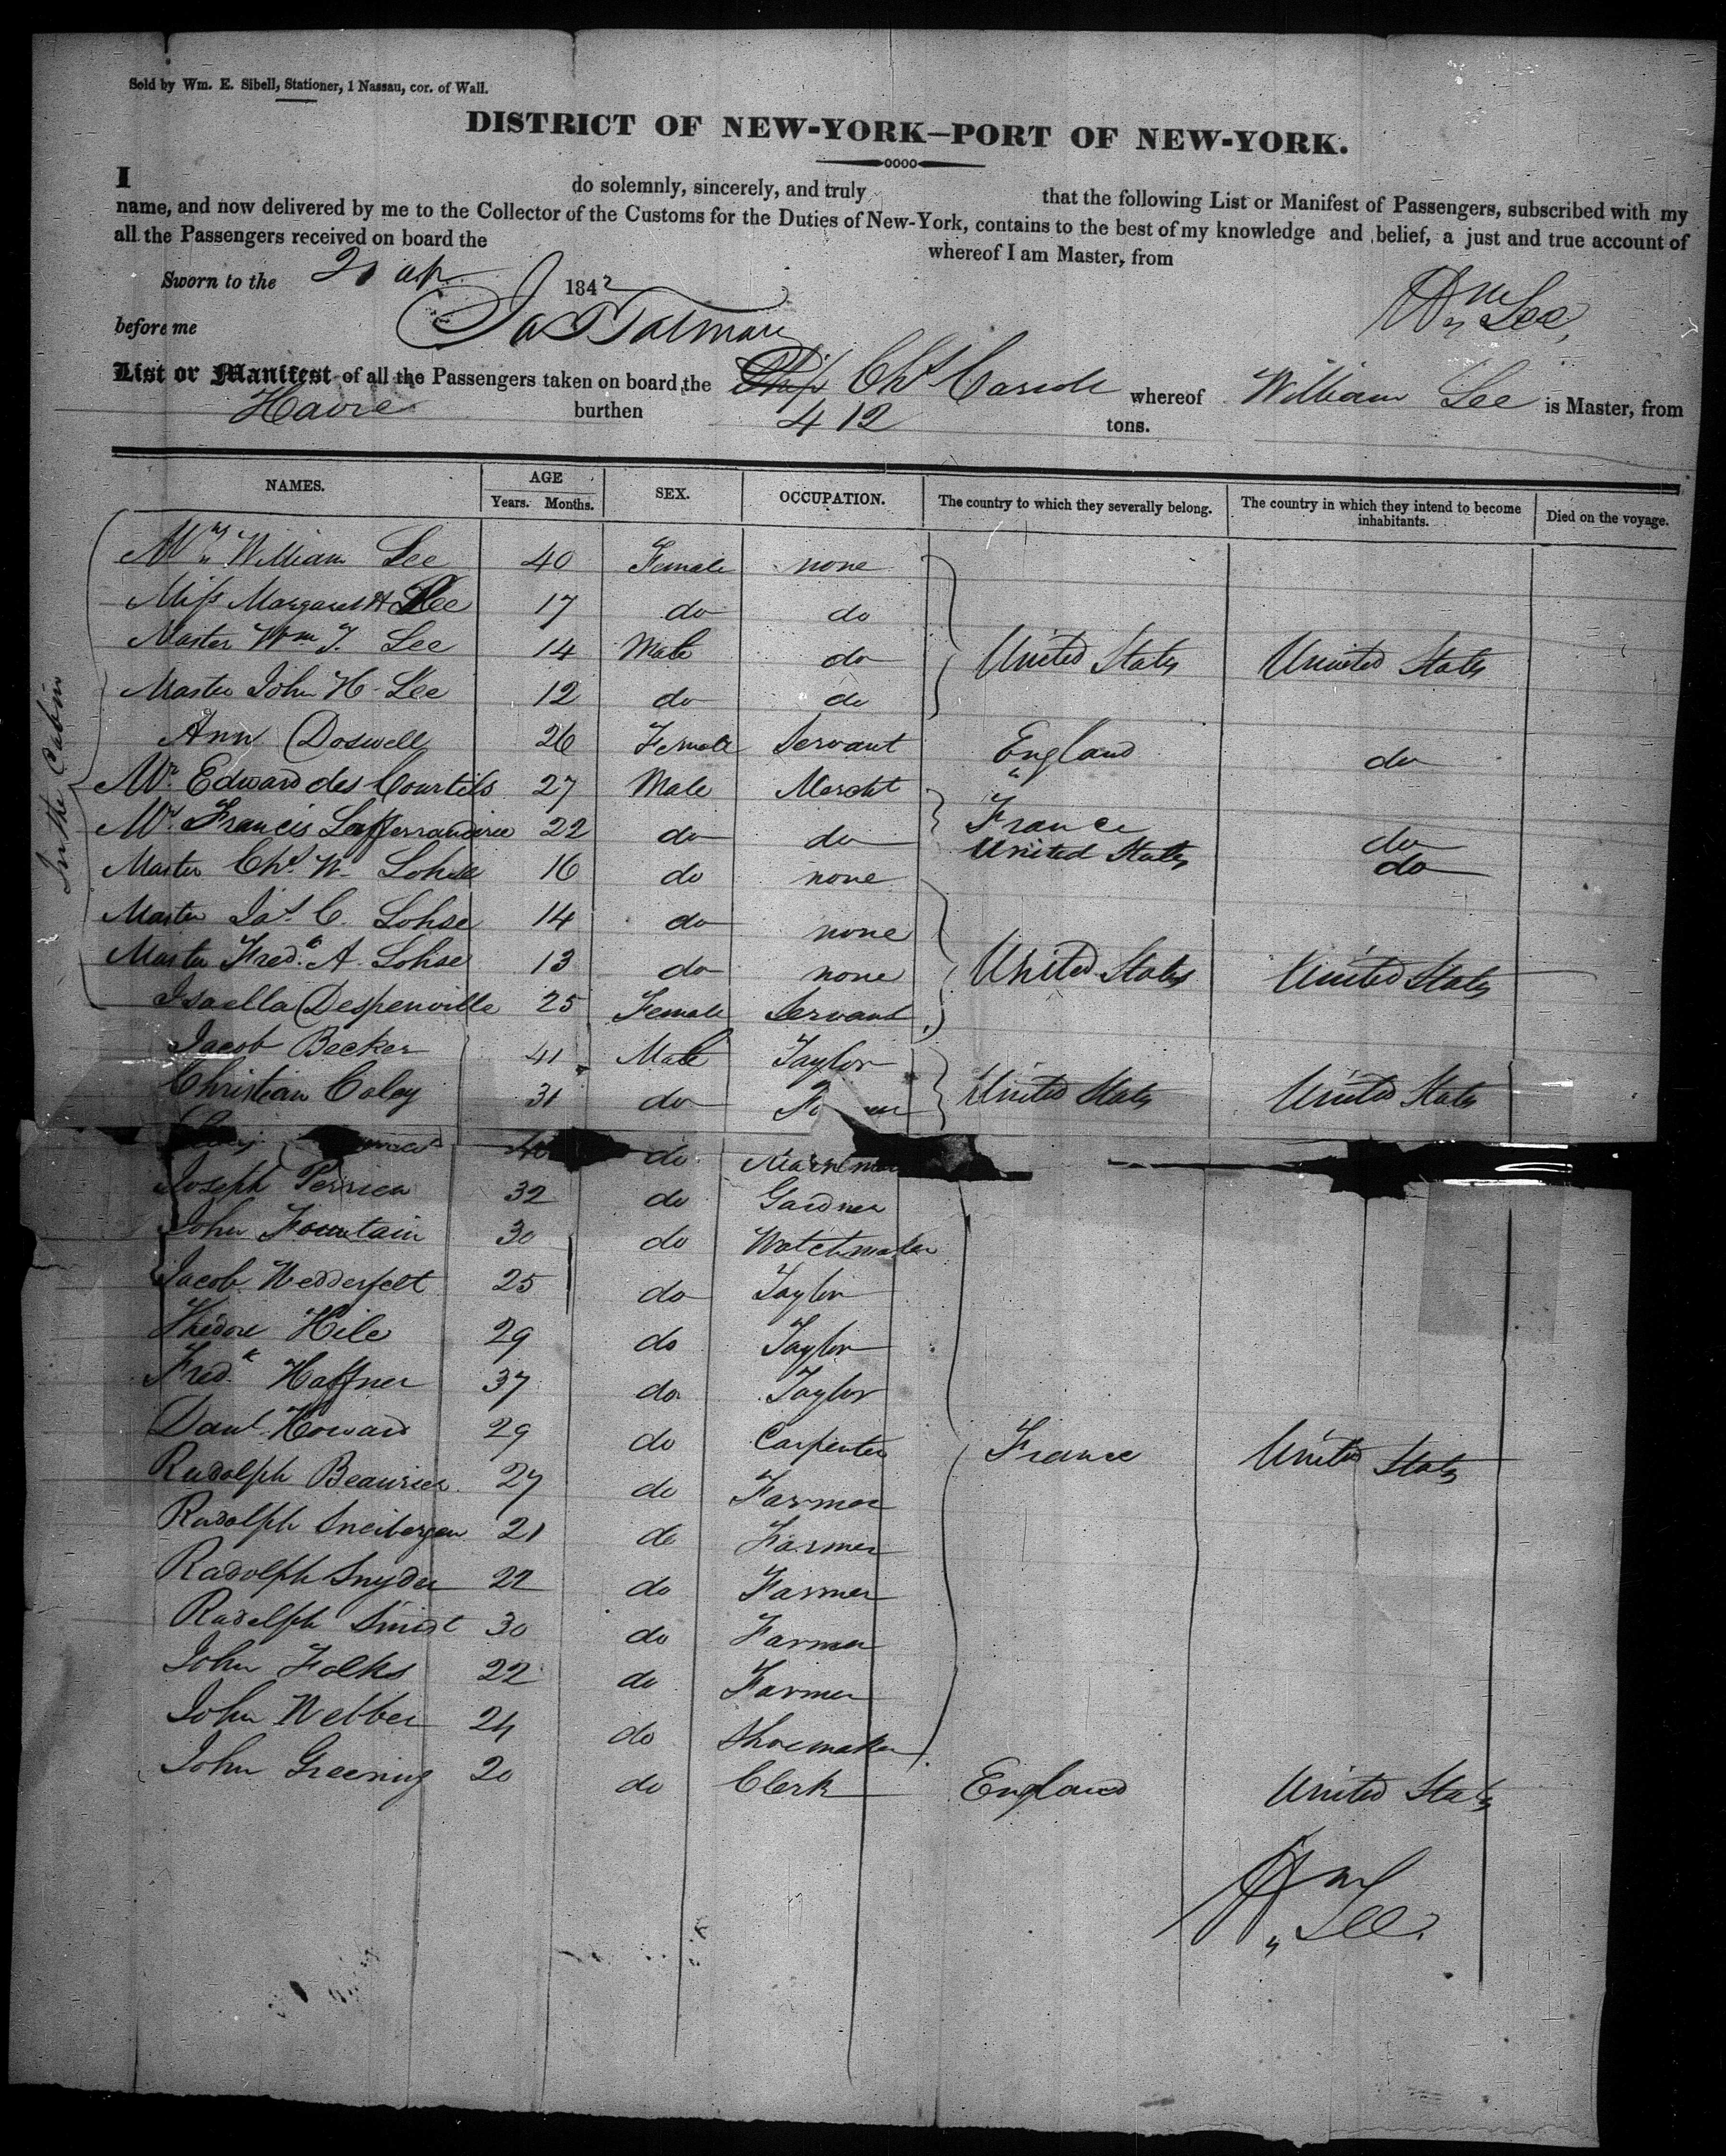 Sold by Wm. E. Sibell, Stationer, 1 Nassau, cor. of Wall.
DISTRICT OF NEW-YORK—PORT OF NEW-YORK.
I do solemnly, sincerely, and truly that the following List or Manifest of Passengers, subscribed with my
name, and now delivered by me to the Collector of the Customs for the Duties of New-York, contains to the best of my knowledge and belief, a just and true account of
all the Passengers received on board the whereof I am Master, from
Sworn to the 21 ap 1842
Wm Lee
before me
List or Manifest of all the Passengers taken on board the Ship Chs Carroll whereof William Lee is Master, from
Havre burthen 412 tons.
NAMES. AGE SEX. OCCUPATION. The country to which they severally belong. The country in which they intend to become inhabitants. Died on the voyage.
Years. Months.
In the Cabin
Mrs William Lee 40 Female none
Miss Margaret H Lee 17 do do
Master Wm T. Lee 14 Male do United States United States
Master John H Lee 12 do do
Ann Doswell 26 Female Servant England do
Mr Edward des Courtils 27 Male Mercht
Mr Francis 22 do do France do
Master Chs W Lohse 16 do none United States do
Master Jas C. Lohse 14 do none
Master Fredk A Lohse 13 do none United States United States
Isaella Despenville 25 Female Servant
Jacob Becker 41 Male Taylor
Christian Coley 31 do United States United States
do
Joseph Perrien 32 do Gardner
John Fountain 30 do Watchmaker
Jacob Wedderfelt 25 do Taylor
Thedore Hile 29 do Taylor
Fredk Haffner 37 do Taylor
Danl Howard 29 do Carpenter France United States
Rudolph Beaurien 27 do Farmer
Rudolph Sneibergen 21 do Farmer
Radolph Snyder 22 do Farmer
Rudolph Smidt 30 do Farmer
John Folks 22 do Farmer
John Webber 24 do Shoemaker
John Greening 20 do Clerk England United States
Wm Lee